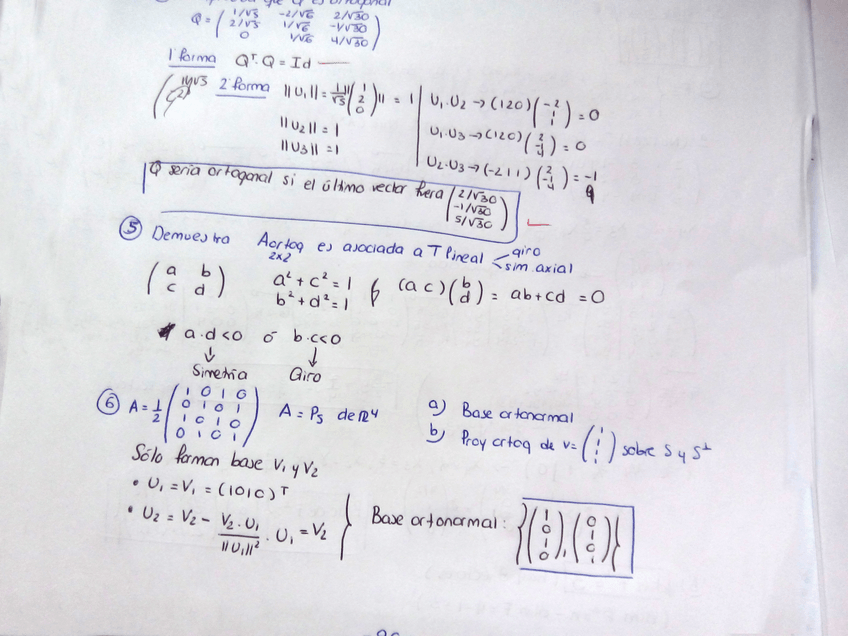 que Q es ortogonal
Q = ( 1/√5 -2/√6 2/√30
2/√5 1/√6 -1/√30
0 1/√6 4/√30 )
1ª forma Qᵀ·Q = Id —
2ª forma ||U₁|| = 1/√5 ||(1 2 0)|| = 1
||U₂|| = 1
||U₃|| = 1
U₁·U₂ → (1 2 0) (-2 1 1) = 0
U₁·U₃ → (1 2 0) (2 -1 4) = 0
U₂·U₃ → (-2 1 1) (2 -1 4) = -1
Q sería ortogonal si el último vector fuera ( 2/√30
-1/√30
5/√30 )
⑤ Demuestra A ortog es asociada a T lineal < giro
2x2 sim axial
( a b
c d )
a² + c² = 1
b² + d² = 1
(a c) (b d) = ab + cd = 0
a·d<0 ó b·c<0
↓ ↓
Simetría Giro
⑥ A = 1/2 ( 1 0 1 0
0 1 0 1
1 0 1 0
0 1 0 1 )
A = Ps de R⁴
a) Base ortonormal
b) Proy ortog de v = (1 1 1 1) sobre S y S⊥
Sólo forman base V₁ y V₂
• U₁ = V₁ = (1 0 1 0)ᵀ
• U₂ = V₂ - V₂·U₁ / ||U₁||² · U₁ = V₂
Base ortonormal: { (1 0 1 0), (0 1 0 1) }